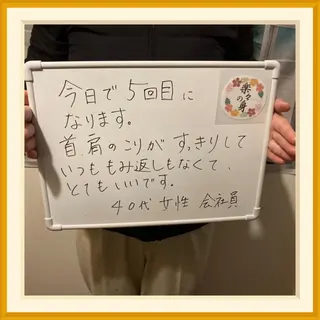 今日で5回目に
なります。
首肩のこりがすっきりして
いつももみ返しもなくて、
とてもいいです。
40代 女性 会社員
楽々
の身